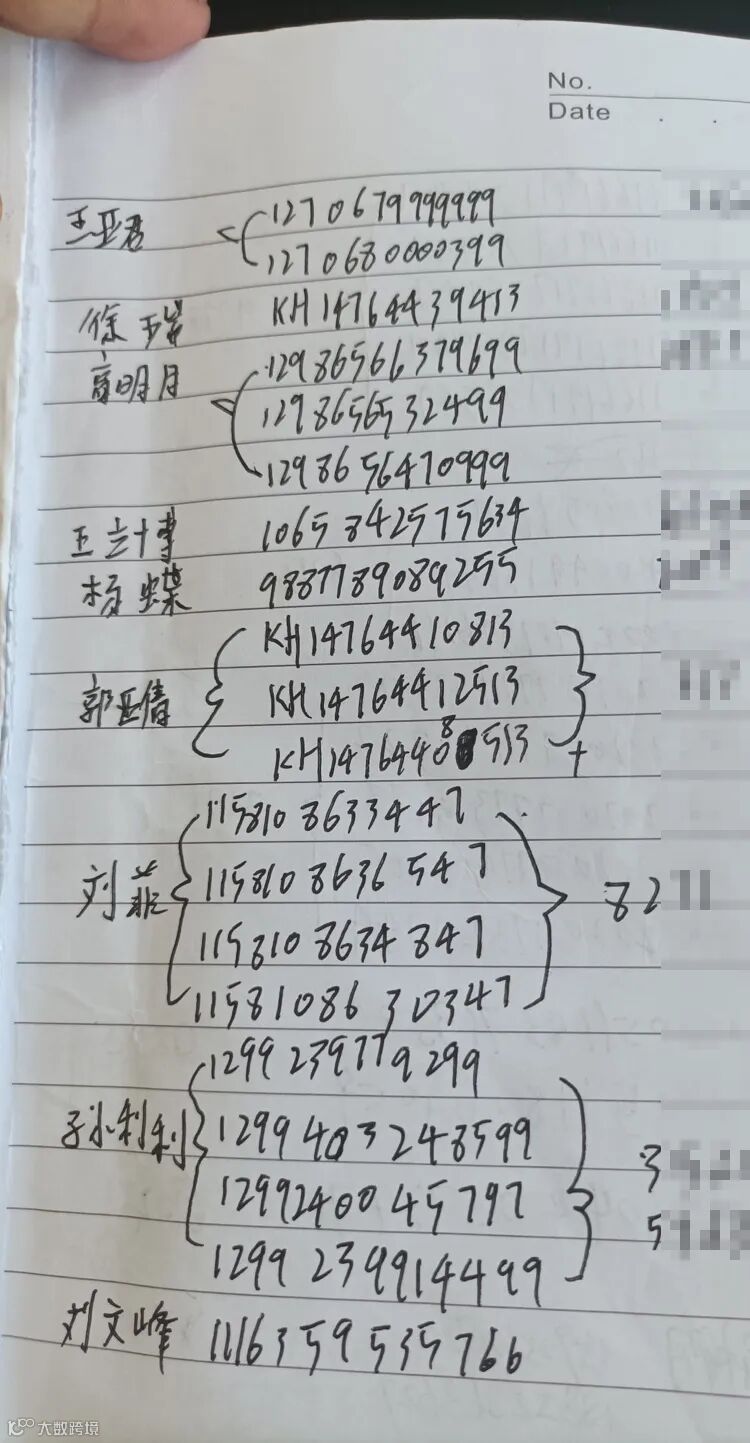 No.
Date . .
王亚君 1270679999999
1270680000399
徐瑞 KH14764439413
高明月 12986566379699
1298656532499
1298656470999
王兰博 1065842575634
杨蝶 9887789089255
郭亚倩 KH14764410813
KH14764412513
KH14764408513 +
刘菲 1158108633447
1158108636547 82
1158108634847
1158108630347
孙利利 1299239779299
1299403248599 3
1299240045797 5
12992399914499
刘文峰 1116359535766
大数跨境